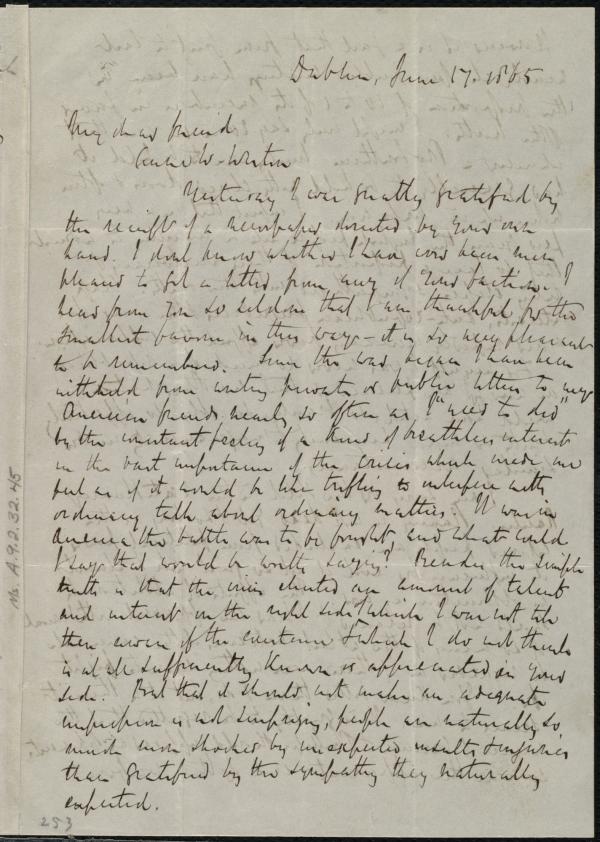 Dublin, June 17. 1865
My dear friend
Anne W. Weston
Yesterday I was greatly gratified by
the receipt of a newspaper directed by your own
hand. I don't know whether I have ever been more
pleased to get a letter from any of your faction. I
hear from you so seldom that I am thankful for the
smallest favour in this way - it is so very pleasant
to be remembered. Since the war began I have been
withheld from writing private or public letters to my
American friends nearly so often as I "used to did"
by the constant feeling of a kind of breathless interest
in the vast importance of the crisis which made me
feel as if it would be like trifling to interfere with
ordinary talk about ordinary matters. It was in
America the battle was to be fought, and what could
I say that would be worth saying? Besides the simple
truth is that the crisis elicited an amount of talent
and interest on the right side which I was not till
then aware of the existence & which I do not think
is at all sufficiently known or appreciated on your
side. But that it should not make an adequate
impression is not surprising, people are naturally so
much more shocked by unexpected insults & injuries
than gratified by the sympathy they naturally
expected.
253
Ms. A.9.2.32.45